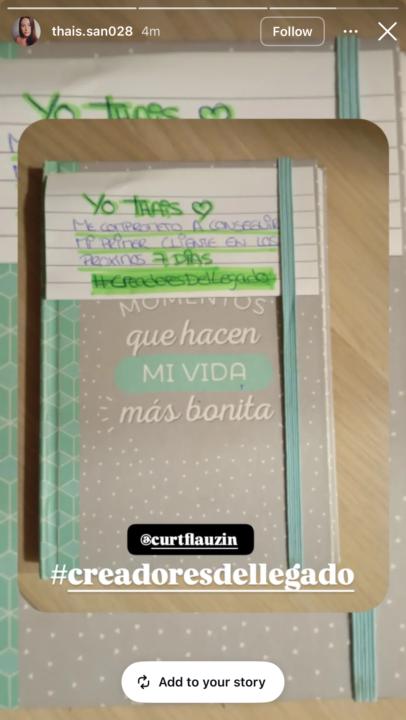 thais.san028 4m
Follow
Yo THAIS
Yo THAIS ♡
ME COMPROMETO A CONSEGUIR
MI PRIMER CLIENTE EN LOS
PROXIMOS 7 DÍAS
#CreadoresDelLegado
MOMENTOS
que hacen
MI VIDA
más bonita
@curtflauzin
#creadoresdellegado
Add to your story